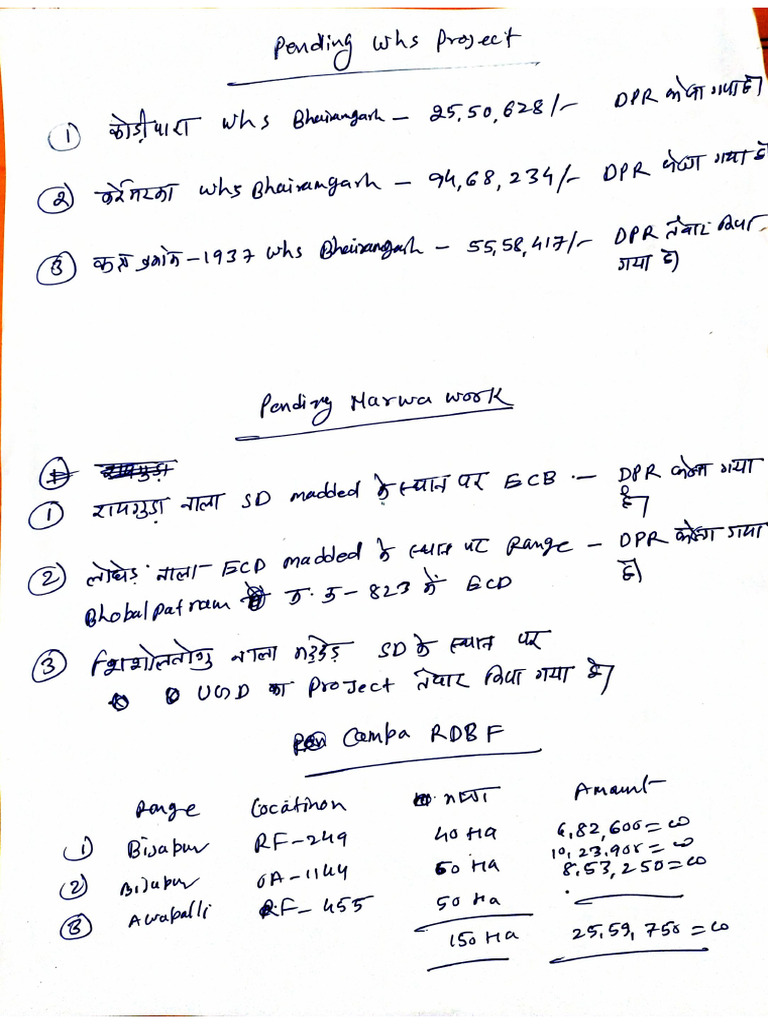 Pending Whs Project
① कोड़ीपारा Whs Bhairamgarh – 25,50,628/- DPR भेजा गया है।
② Whs Bhairamgarh – 94,68,234/- DPR भेजा गया है
③ कक्ष क्रमांक – 1937 Whs Bhairamgarh – 55,58,417/- DPR तैयार किया
गया है।
Pending Narwa work
① रायगुड़ा नाला SD madded के स्थान पर ECB :- DPR भेजा गया
है।
② नाला ECD madded के स्थान पर Range – DPR भेजा गया
है।
Bhobalpatnam क. क – 823 में ECD
③ नाला मद्देड़ SD के स्थान पर
UGD का Project तैयार किया गया है।
Campa RDBF
Range Locatinon रकबा Amount
① Bijapur RF-249 40 Ha 6,82,600=00
10,23,900=00
② Bijapur OA-1144 60 Ha 8,53,250=00
③ Awapalli RF-455 50 Ha
150 Ha 25,59,750=00